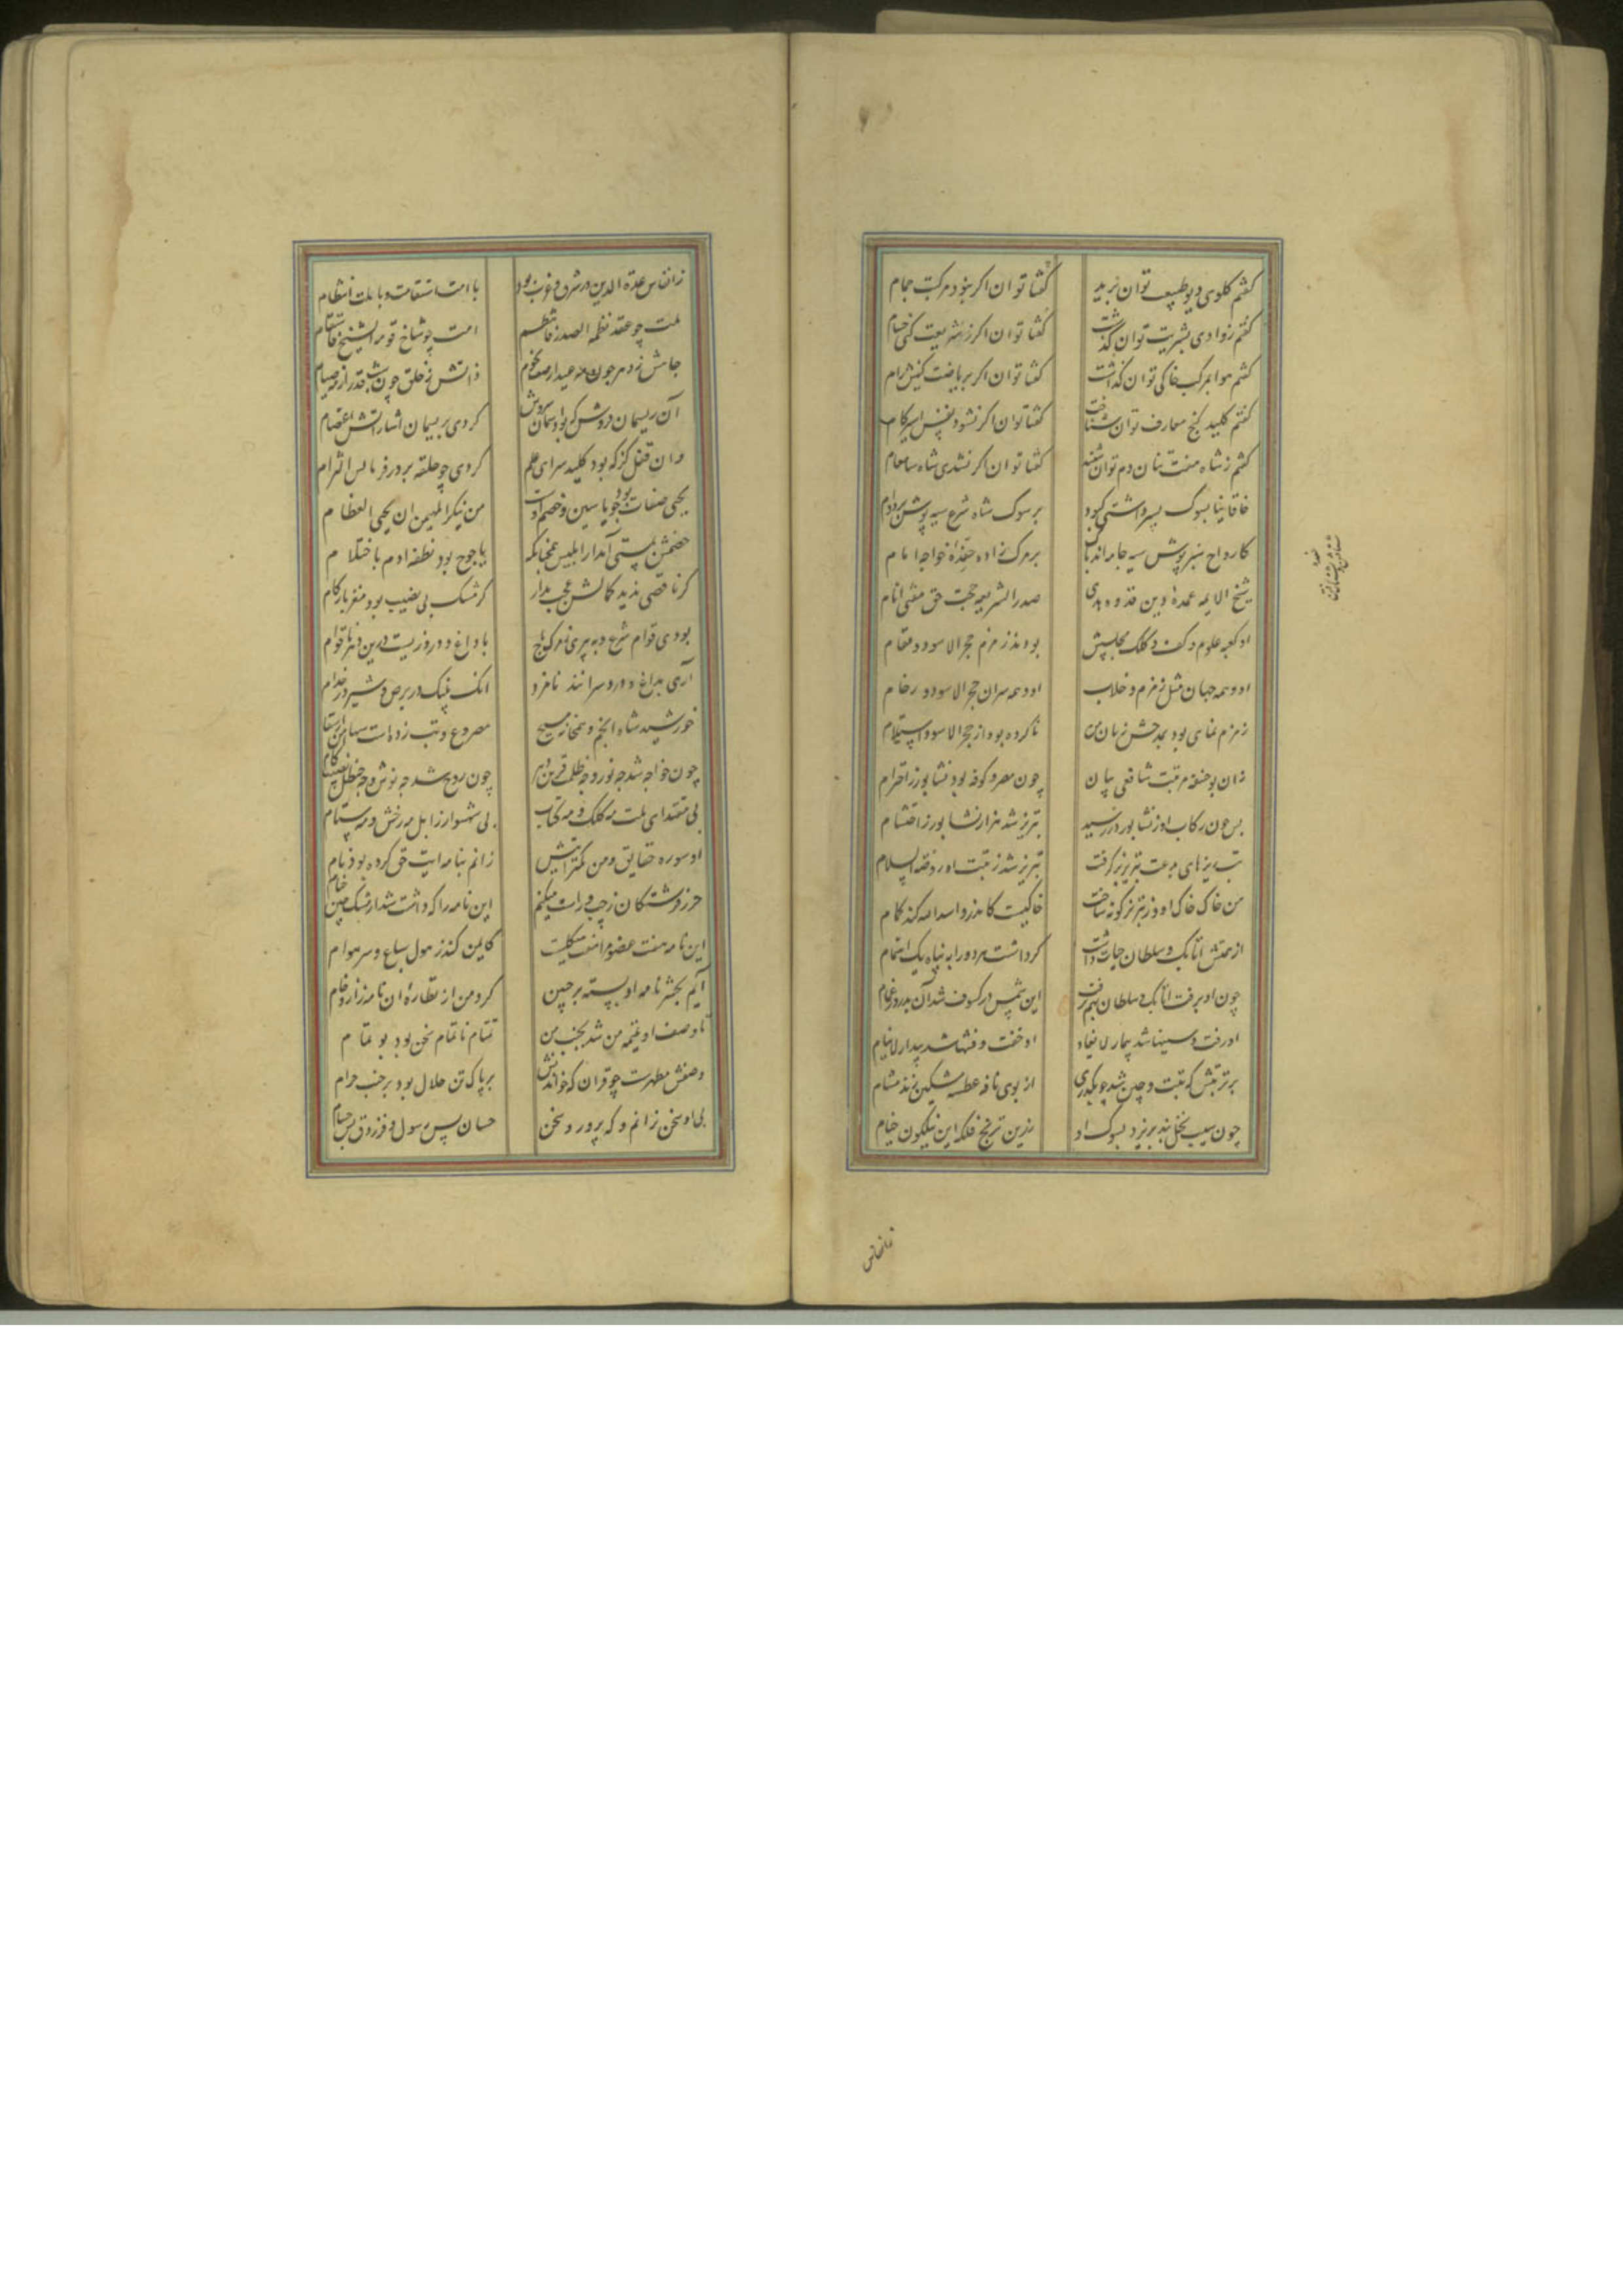 کفتم کلوی دیو طبیعت توان برید
کفتا توان اکر نبود مرکبت جمام
کفتم ز وادی بشریت توان کذشت
کفتا توان اکر ز شریعت کنی خیام
کفتم هوا بمرکب خاکی توان کذاشت
کفتا توان اکر بریاضت کنیش رام
کفتم کلید کنج معارف توان شناخت
کفتا توان اکر نشود نفس اسیر کام
کفتم ز شاه هفت تنان دم توان شنید
کفتا توان اکر نشدی شاه سام
خاقانیا بسوک پسر داشتی کبود
بر سوک شاه شرع سیه پوش بر دوام
کارواح سبز پوش سیه جامه اند پاک
بر مرک زاده حفده خواجه امام
شیخ الایمه عمده دین قدوه هدی
صدر الشریعه حجت حق مفتی انام
او کعبه علوم و کف و کلک و مجلسش
بودند زمزم حجر الاسود و مقام
او و همه جهان مثل زمزم و خلاب
او و همه سران حجر الاسود و رخام
زمزم نمای بود بمدحش زبان من
تا کرده بود از حجر الاسود استلام
زان بو حنیفه مرتبت شافعی بیان
چون مصر و کوفه بود نشابور ز احترام
پس چون رکاب او ز نشابور در رسید
تبریز شد هزار نشابور ز احتشام
تب ریزهای بدعت تبریز برکرفت
تبریز شد ز رتبت او روضه السلام
من خاک خاک او که ز تبریز کوفه ساخت
خاکیست کاندرو اسد الله کند کنام
از همتش اتابک و سلطان حیات داشت
کو داشت هر دو را به پناه یک اهتمام
چون او برفت اتابک و سلطان بهم برفت
این شمس در کسوف شد آن بدر در غمام
او رفت و سینها شد بیمار لا یعاد
او خفت و فتنها شد بیدار لا ینام
بر تربتش که تبت و چین شد چو بکذری
از بوی نافه عطسه مشکین زند مشام
چون سیب نخل بند بریزد بسوک او
زرین ترنج فلکه این نیلکون خیام
خاقانی
ز انفاس عمدة الدین در شرق و غرب بود
با امت استقامت و با ملت انتظام
ملت چو عقد نظمه الصدر فانتظم
امت چو شاخ قومه الشیخ فاستقام
جاهش ز دهر چون مه عید از صف نجوم
ذاتش ز خلق چون شب قدر از مه صیام
آن ریسمان فروش که بود آسمانش
کردی بریسمان اشاراتش اعتصام
وان قفل کر که بود کلید سرای علم
کردی چو حلقه بر در فرمانش التزام
یحیی صفات بود چو یاسین و خصم اوست
من ینکر المهیمن ان یحیی العظام
خصمش بمستی آمد از ابلیس همچنانکه
یاجوج بود نطفه ادم با حتلام
کر ناقصی ندید کمالش عجب مدار
کز مشک بی نصیب بود مغز با زکام
بودی قوام شرع و به پیری ز مرک
با داغ و درد زیست درین دهر ناقوام
آری بداغ و درد سرانند نامزد
اینک پلنک در برص و شیر در جذام
خورشید شاه انجم و همخانه مسیح
مصروع و تب زده است
چون خواجه شد چه نور و چه ظلمت قرین دهر
چون روح شد چه نوش و چه حنظل نصیب کام
بی مقتدای ملت مه کلک و مه کتاب
بی شهسوار زابل مه رخش و مه ستام
او سوره حقایق و من کمتر آیتش
زانم بنامه آیت حق کرده بود نام
حرز فرشتکان ز چپ و راست میکنم
این نامه را که داشت شد از مشک چین ختام
این نامه هفت عضو مرا هفت هیکلست
کایمن کند ز هول سباع و سر هوام
آیم بحشر نامه او بسته بر جبین
کرد من از نظاره آن نامه زحام
تا وصف او تمیمه من شد بجنب من
تمتام ناتمام سخن بود بو تمام
وصفش مطهرست چو قران که خواندنش
بر پاک تن حلال بود بر جنب حرام
بی او سخن نرانم و کی پرورد سخن
حسان پس از رسول و فرزدق پس هشام